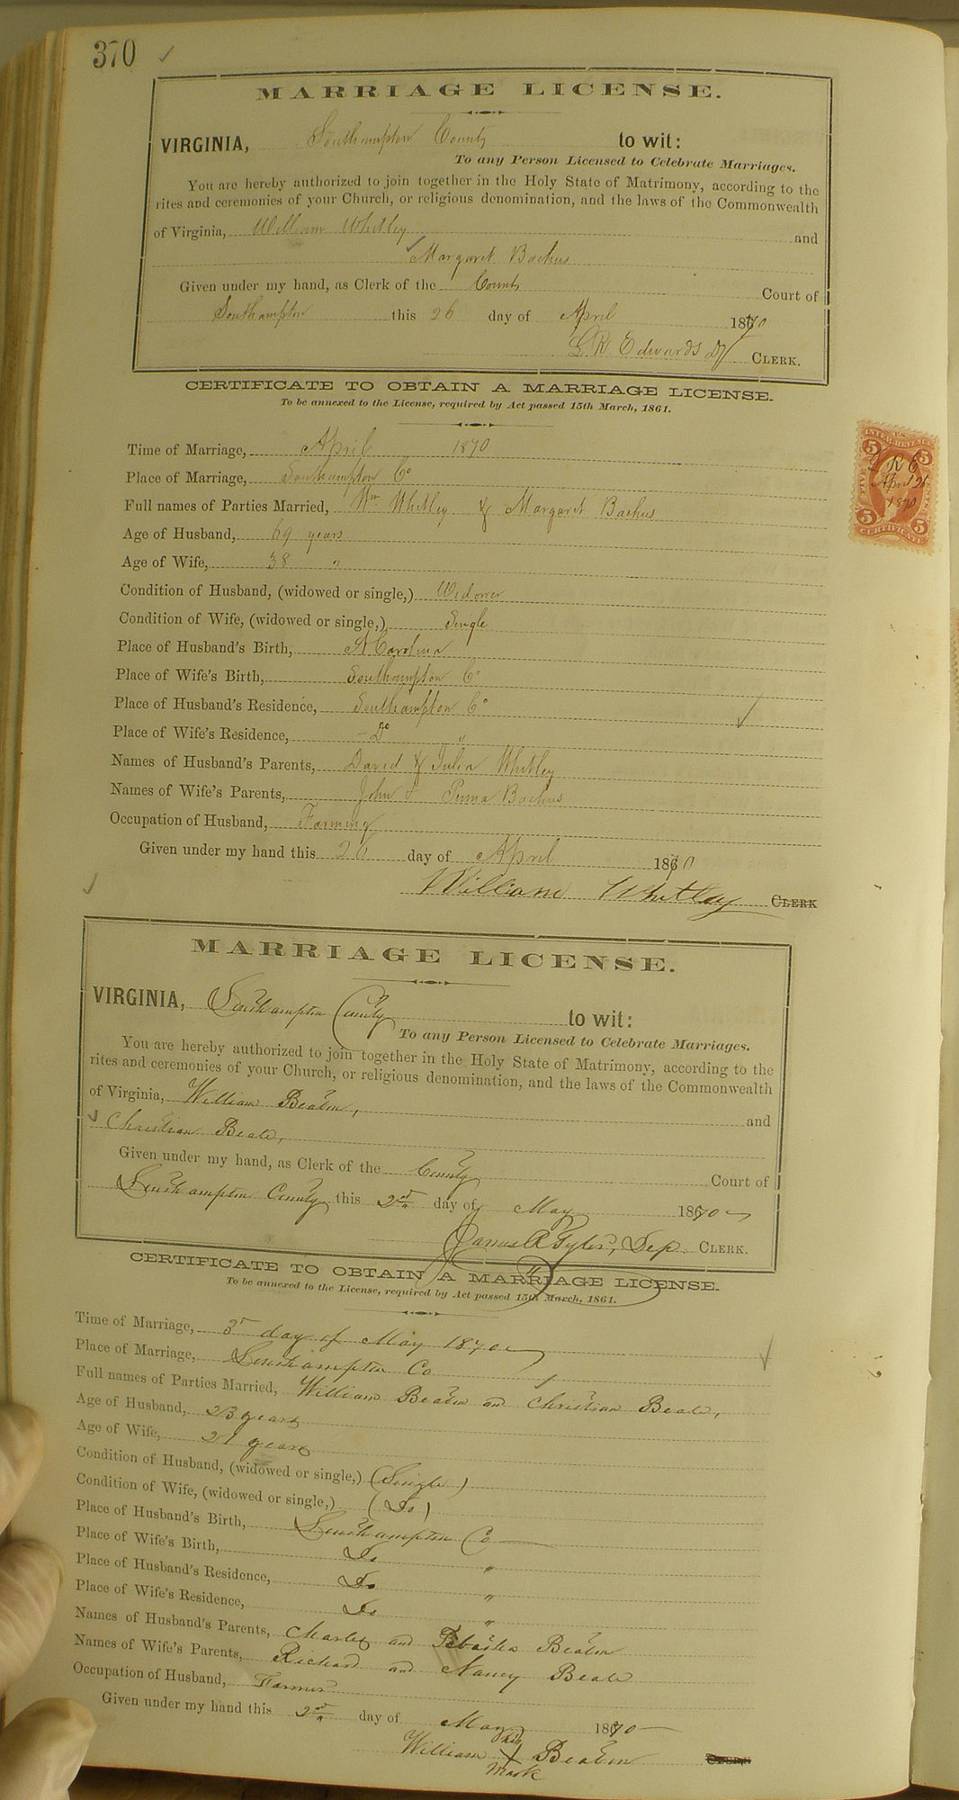 370
MARRIAGE LICENSE.
VIRGINIA, Southampton County to wit:
To any Person Licensed to Celebrate Marriages.
You are hereby authorized to join together in the Holy State of Matrimony, according to the
rites and ceremonies of your Church, or religious denomination, and the laws of the Commonwealth
of Virginia, William Whitley and
Margaret Backus
Given under my hand, as Clerk of the County Court of
Southampton this 26 day of April 1870
L R Edwards Dy CLERK.
CERTIFICATE TO OBTAIN A MARRIAGE LICENSE.
To be annexed to the License, required by Act passed 15th March, 1861.
Time of Marriage, April 1870
Place of Marriage, Southampton Co
Full names of Parties Married, Wm Whitley & Margaret Backus
Age of Husband, 69 years
Age of Wife, 38 "
Condition of Husband, (widowed or single,) Widower
Condition of Wife, (widowed or single,) Single
Place of Husband's Birth, N Carolina
Place of Wife's Birth, Southampton Co
Place of Husband's Residence, Southampton Co
Place of Wife's Residence, Do "
Names of Husband's Parents, David & Julia Whitley
Names of Wife's Parents, John & Backus
Occupation of Husband, Farming
Given under my hand this 26 day of April 1870
William Whitley CLERK
U.S.
INTER. REVENUE
5 5
L R E
April 26
1870
5 5
CERTIFICATE
MARRIAGE LICENSE.
VIRGINIA, Southampton County to wit:
To any Person Licensed to Celebrate Marriages.
You are hereby authorized to join together in the Holy State of Matrimony, according to the
rites and ceremonies of your Church, or religious denomination, and the laws of the Commonwealth
of Virginia, William Beaton, and
Christian Beale,
Given under my hand, as Clerk of the County Court of
Southampton County this 2nd day of May 1870
James R Tyler, Dep. CLERK.
CERTIFICATE TO OBTAIN A MARRIAGE LICENSE.
To be annexed to the License, required by Act passed 15th March, 1861.
Time of Marriage, 3r day of May 1870
Place of Marriage, Southampton Co
Full names of Parties Married, William Beaton and Christian Beale,
Age of Husband, 23 years
Age of Wife, 21 years
Condition of Husband, (widowed or single,) (Single)
Condition of Wife, (widowed or single,) (Do)
Place of Husband's Birth, Southampton Co
Place of Wife's Birth, Do "
Place of Husband's Residence, Do "
Place of Wife's Residence, Do "
Names of Husband's Parents, Charles and Beaton
Names of Wife's Parents, Richard and Nancy Beale
Occupation of Husband, Farmer
Given under my hand this 2nd day of May 1870
his
William X Beaton CLERK
Mark